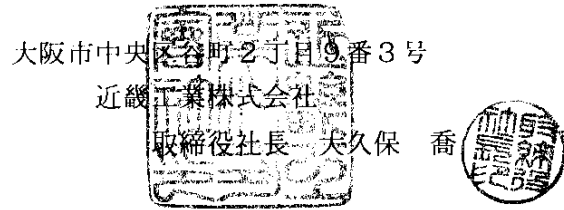 大阪市中央区谷町2丁目9番3号
近畿工業株式会社
取締役社長 大久保 喬